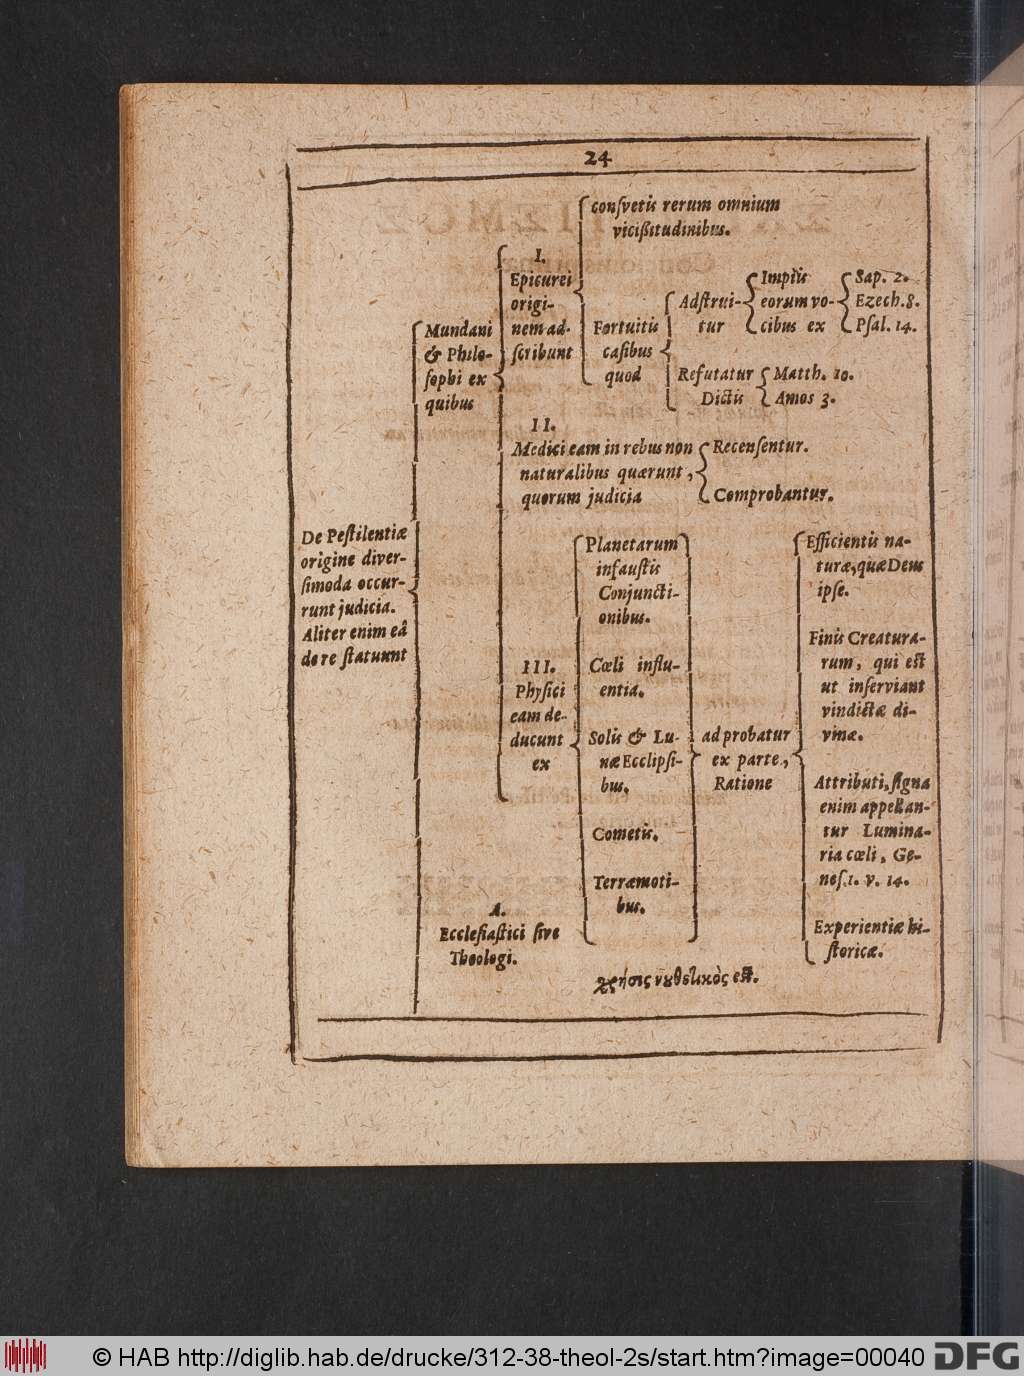 24
De Peſtilentiæ
origine diver-
ſimoda occur-
runt judicia.
Aliter enim eâ
de re ſtatuunt
Mundani
& Philo-
ſophi ex
quibus
I.
Epicurei
origi-
nem ad-
ſcribunt
conſvetis rerum omnium
viciſsitudinibus.
Fortuitis
caſibus
quod
Adſtrui-
tur
Impiis
eorum vo-
cibus ex
Sap. 2.
Ezech. 8.
Pſal. 14.
Refutatur
Dictis
Matth. 10.
Amos 3.
II.
Medici eam in rebus non
naturalibus quærunt,
quorum judicia
Recenſentur.
Comprobantur.
III.
Phyſici
eam de-
ducunt
ex
Planetarum
infauſtis
Conjuncti-
onibus.
Cœli influ-
entia.
Solis & Lu-
næ Ecclipſi-
bus.
Cometis.
Terræmoti-
bus.
adprobatur
ex parte,
Ratione
Efficientis na-
turæ, quæ Deus
ipſe.
Finis Creatura-
rum, qui eſt
ut inſerviant
vindictæ di-
vinæ.
Attributi, ſigna
enim appellan-
tur Lumina-
ria cœli, Ge-
neſ. 1. v. 14.
Experientiæ hi-
ſtoricæ.
A.
Ecclefiaſtici ſive
Theologi.
χρῆσις νȣθετικὸς eſt.
© HAB http://diglib.hab.de/drucke/312-38-theol-2s/start.htm?image=00040
DFG